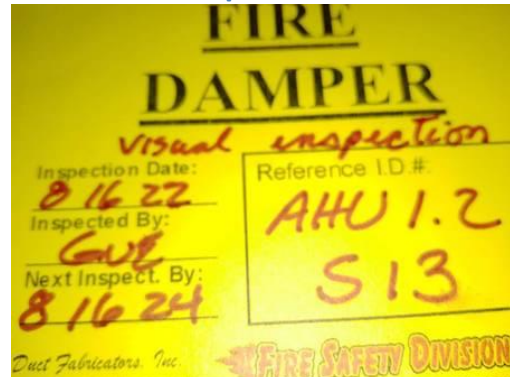 FIRE
DAMPER
visual inspection
Inspection Date:
8 16 22
Inspected By:
Next Inspect. By:
8 16 24
Reference I.D.#:
AHU 1.2
S13
Duct Fabricators, Inc.
FIRE SAFETY DIVISION